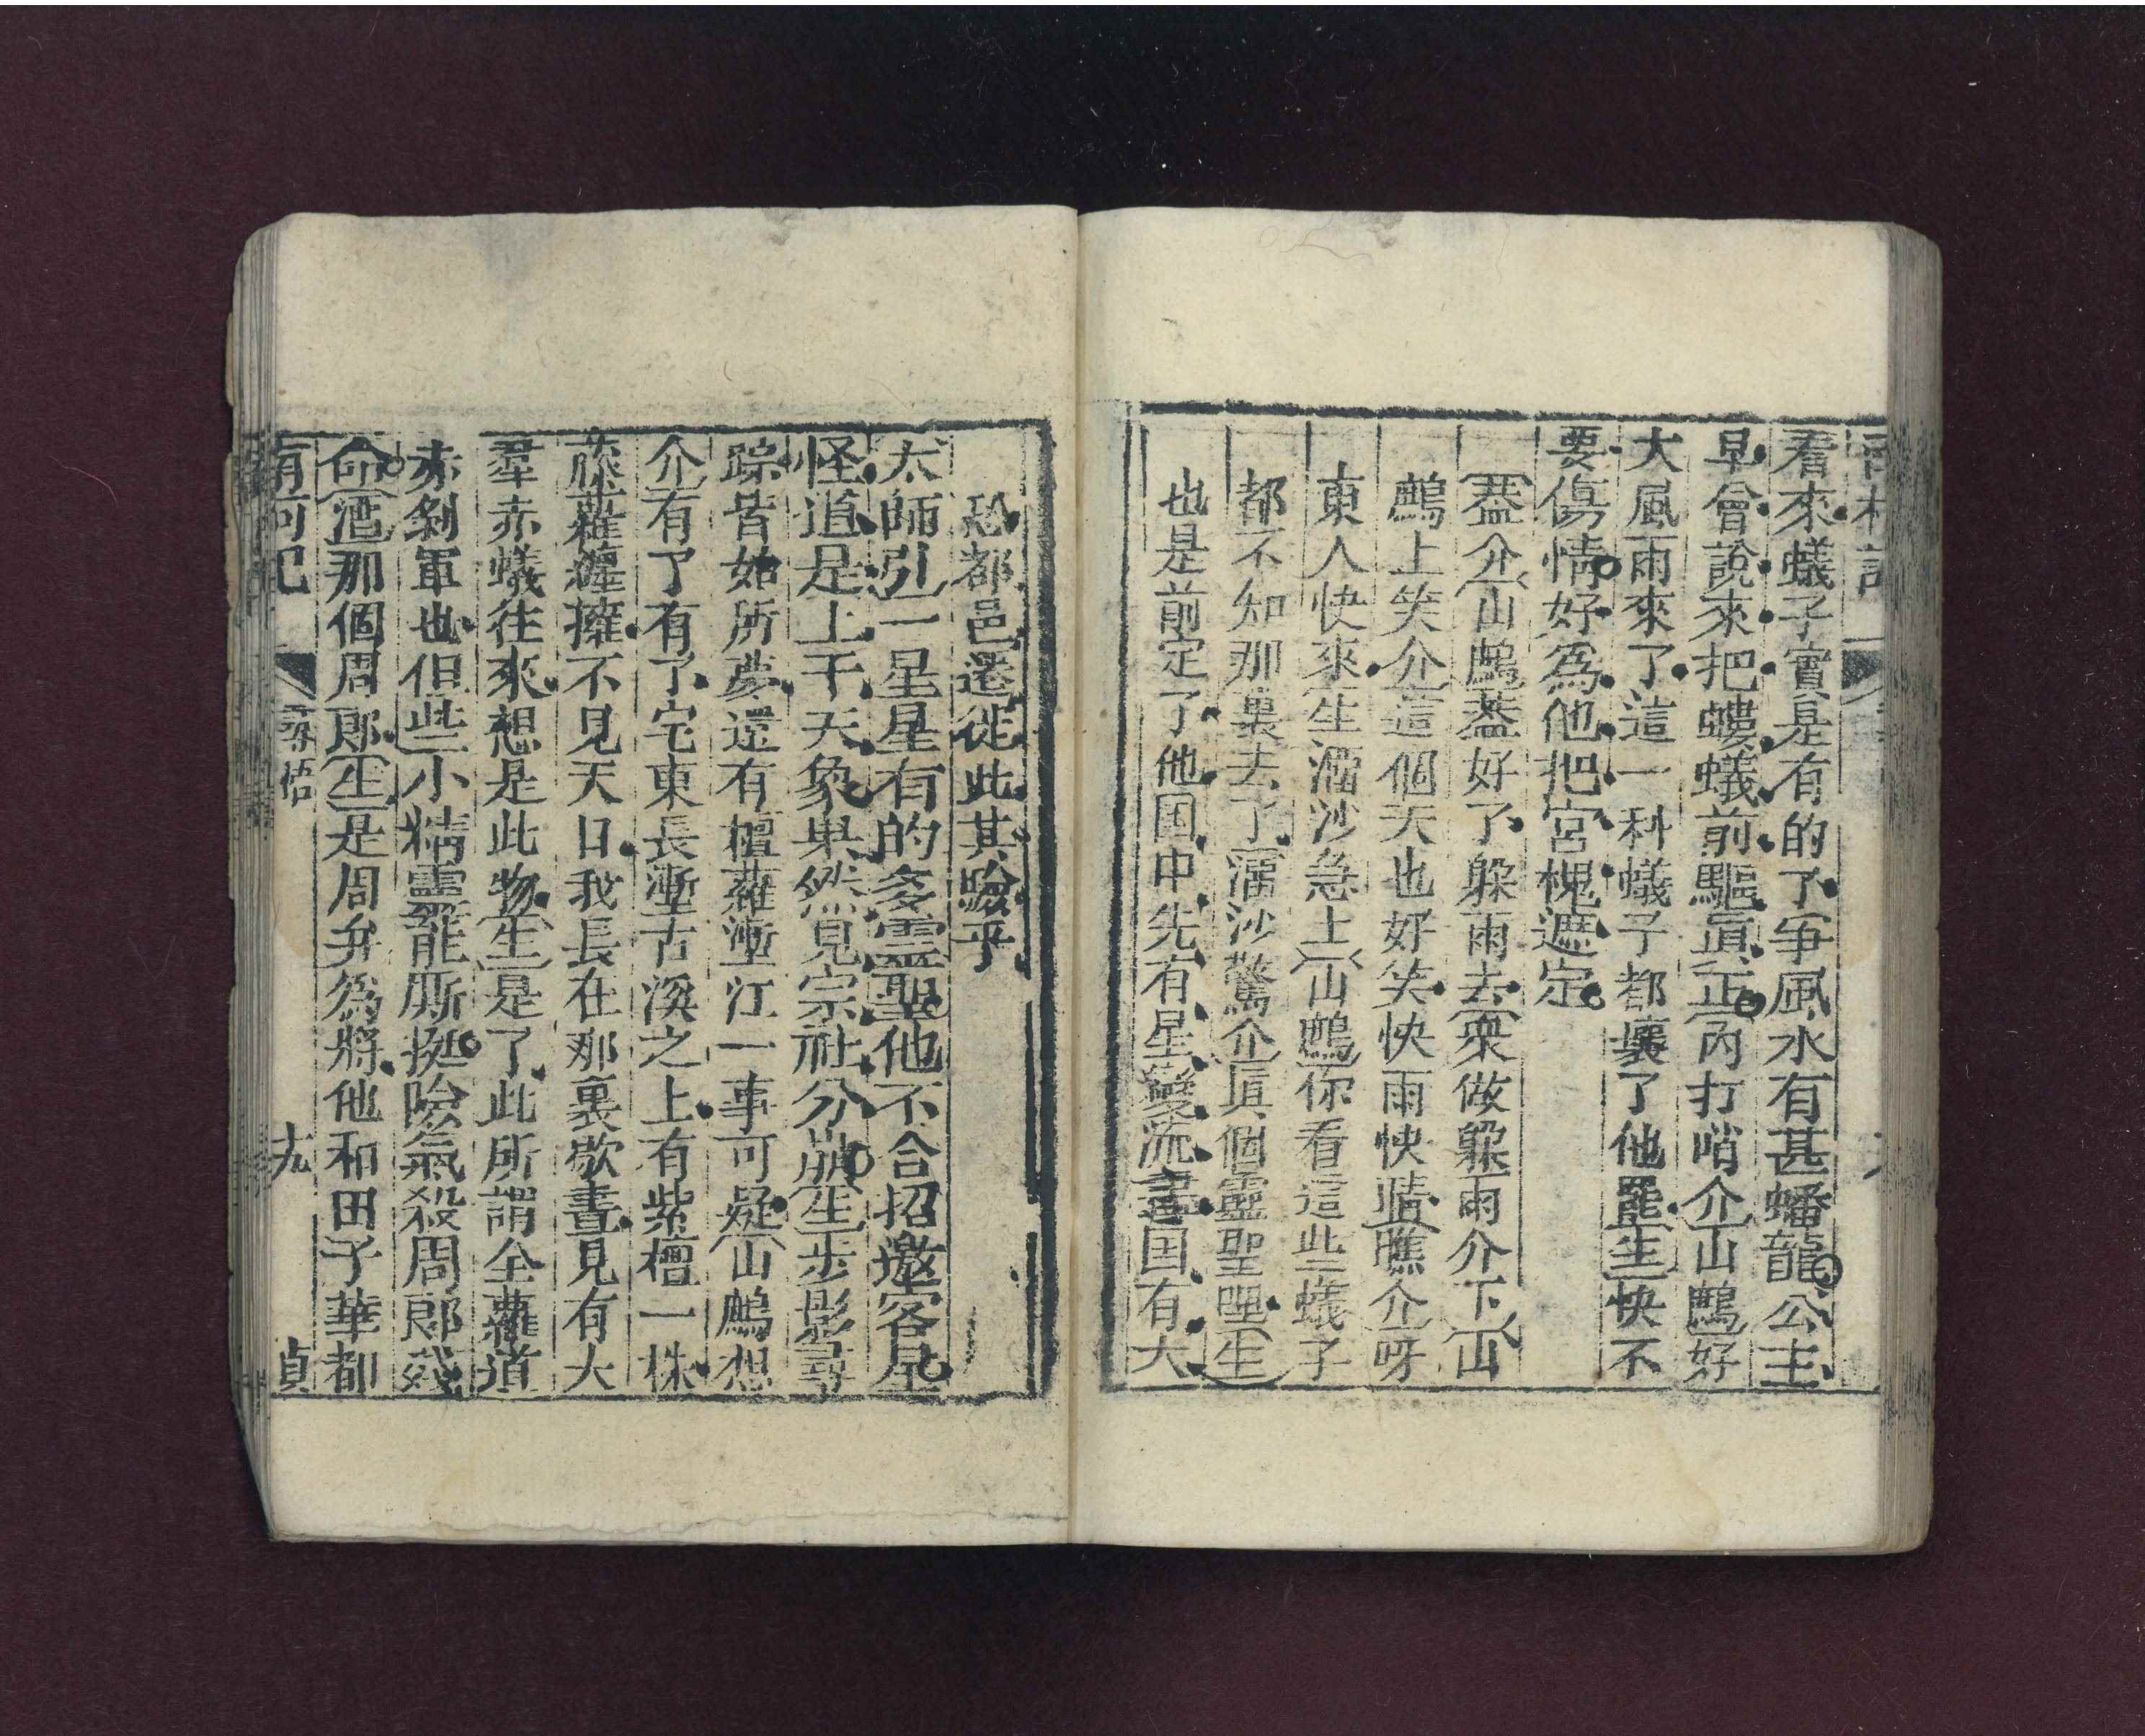 南柯記
看來蟻子實是有的了争風水有甚蟠龍公主
早曾說來把螻蟻前驅眞正内打哨介山鷓好
大風雨來了這一科蟻子都壤了他罷生快不
要傷情好爲他把宮槐遮定
葢介山鷓葢好了躲雨去衆做躲雨介下山
鷓上笑介這個天也好笑快雨快晴瞧介呀
東人快來生溜沙急上山鷓你看這些蟻子
都不知那裏去了溜沙驚介眞個靈聖哩生
也是前定了他国中先有星變流書国有大
恐都邑遷徙此其驗乎
太師引一星星有的多靈聖他不合招邀客星
怪道是上干天象果然見宗社分崩生步影尋
踪皆如所夢還有檀蘿塹江一事可疑山鷓想
介有了有了宅東長塹古溪之上有紫檀一株
藤蘿纏擁不見天日我長在那裏歇晝見有大
羣赤蟻往來想是此物生是了此所謂全蘿道
赤剝軍也但些小精靈能厮挺險氣殺周郎殘
命溜那個周郎生是周弁爲將他和田子華都
南柯記
尋悟
九
貞